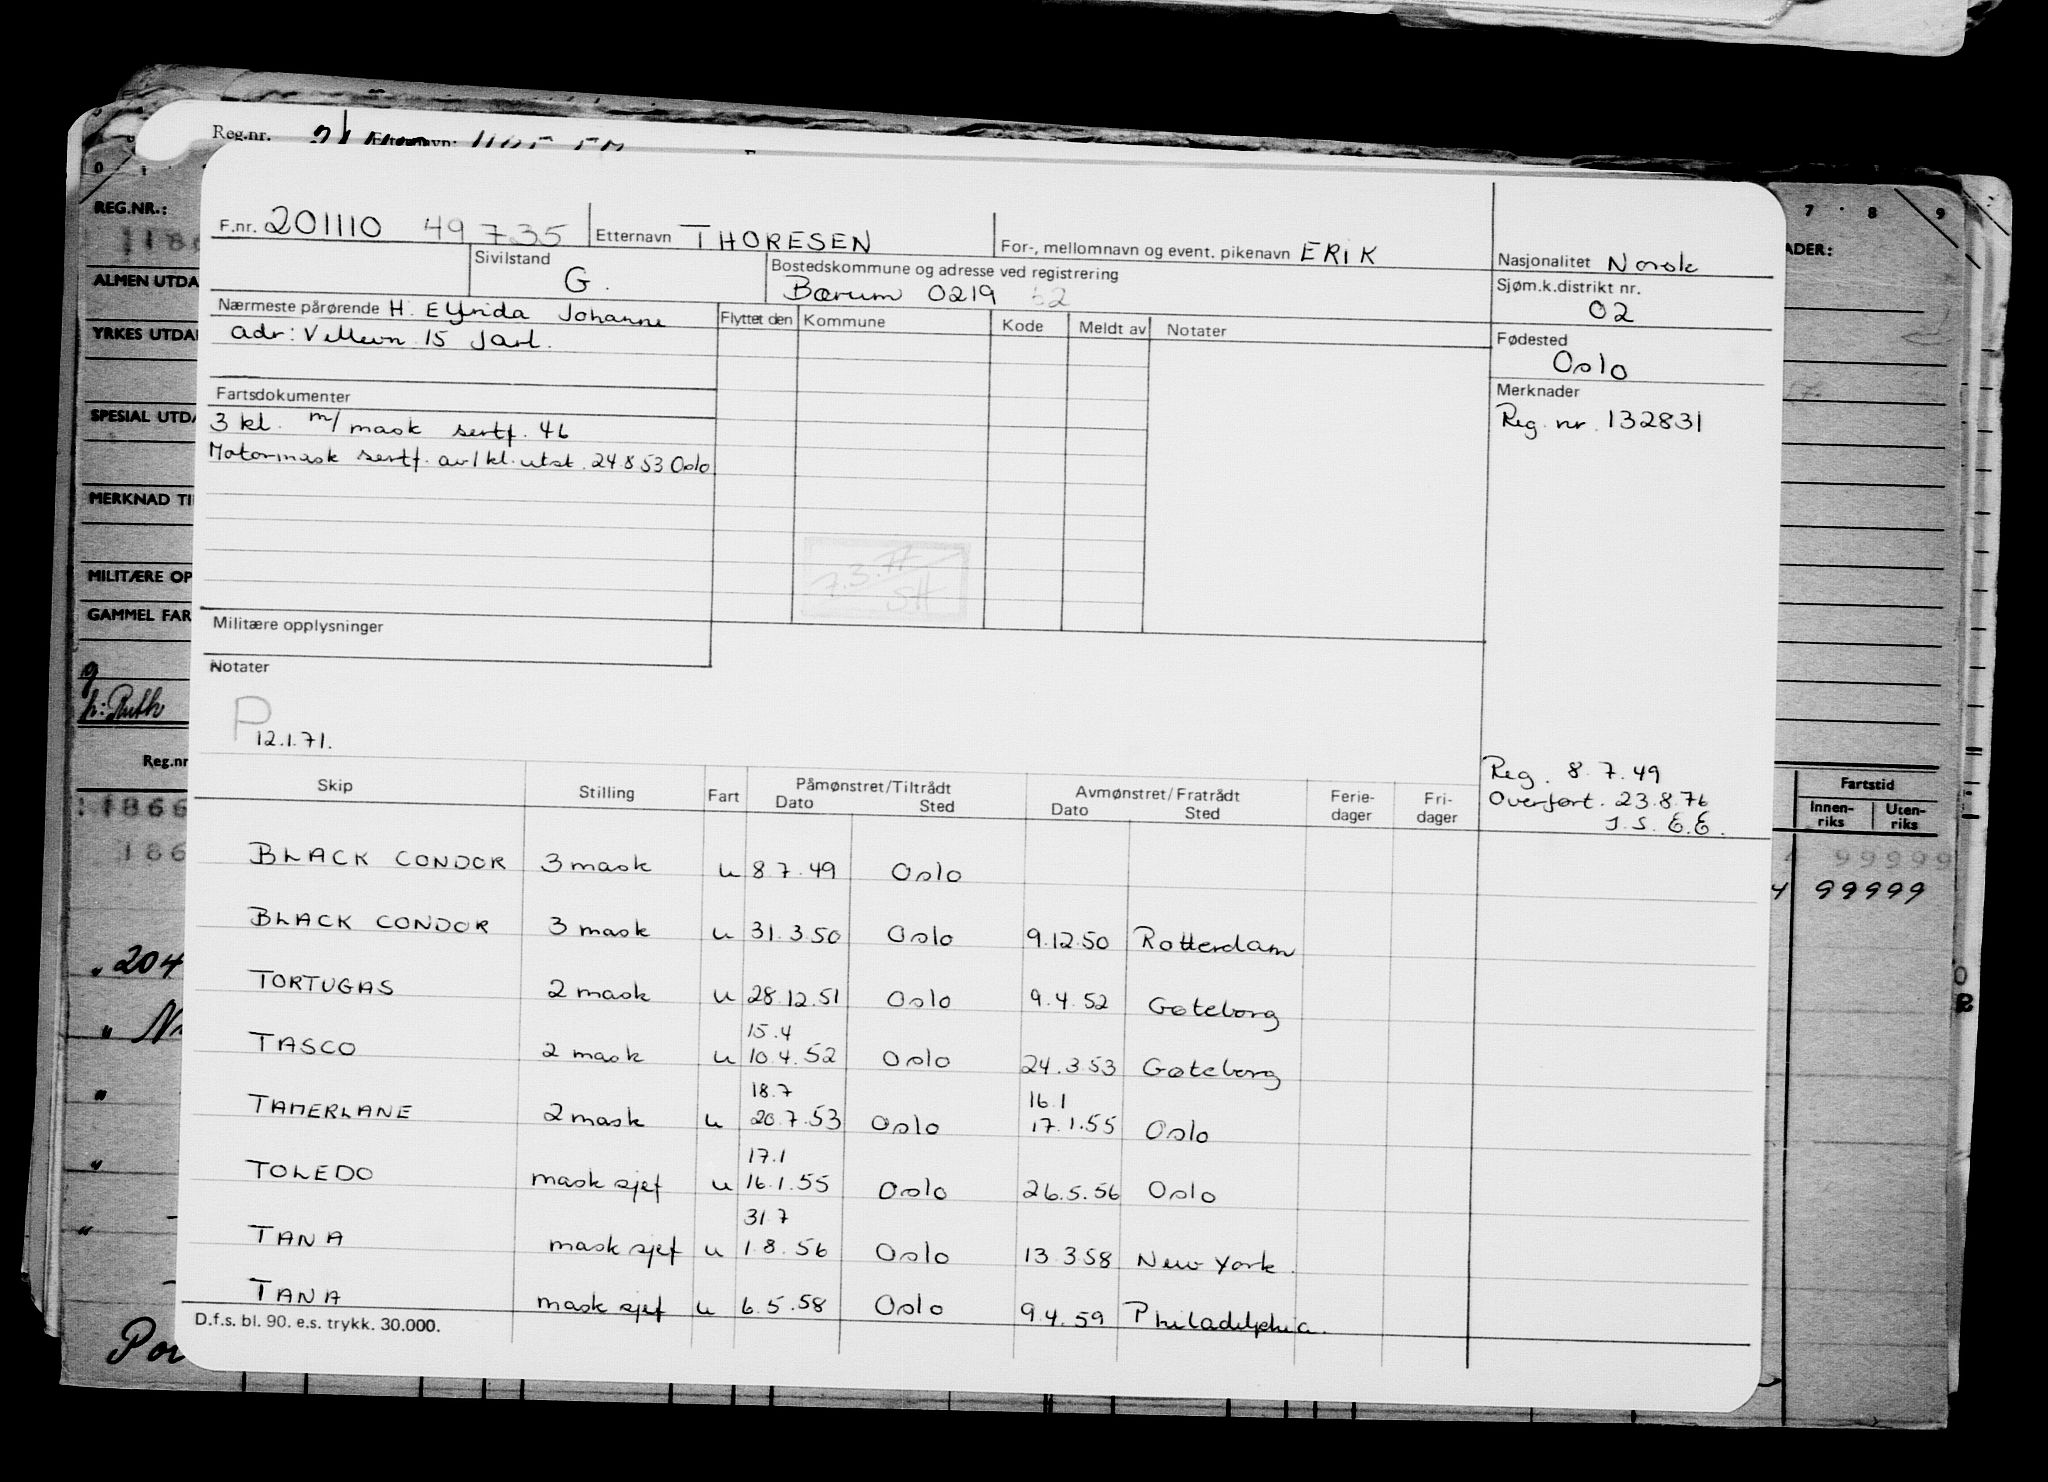 Reg.nr.
REG.NR.:
F.nr. 201110 49735 Etternavn THORESEN For-, mellomnavn og event. pikenavn ERIK Nasjonalitet Norsk
Sivilstand G. Bostedskommune og adresse ved registrering Bærum 0219 Sjøm.k.distrikt nr. 02
Nærmeste pårørende H. Elfrida Johanne Flyttet den Kommune Kode Meldt av Notater
adr: Vellevn 15 Jarl.
Fødested
Oslo
Fartsdokumenter
Merknader
3 kl. m/ mask sertf. 46
Reg. nr. 132831
Motormask sertf. av 1 kl. utst. 24.8 53 Oslo
7.3.77
SH
Militære opplysninger
Notater
P
12.1.71.
Reg. 8.7.49
Overført. 23.8.76
J. S. E.E.
Skip Stilling Fart Påmønstret/Tiltrådt Dato Sted Avmønstret/Fratrådt Dato Sted Ferie-dager Fri-dager
BLACK CONDOR 3 mask u 8.7.49 Oslo
BLACK CONDOR 3 mask u 31.3.50 Oslo 9.12.50 Rotterdam
TORTUGAS 2 mask u 28.12.51 Oslo 9.4.52 Gøteborg
15.4
TASCO 2 mask u 10.4.52 Oslo 24.3.53 Gøteborg
18.7 16.1
TAMERLANE 2 mask u 20.7.53 Oslo 17.1.55 Oslo
17.1
TOLEDO mask sjef u 16.1.55 Oslo 26.5.56 Oslo
31.7
TANA mask sjef u 1.8.56 Oslo 13.3.58 New York.
TANA mask sjef u 6.5.58 Oslo 9.4.59 Philadelphia.
D.f.s. bl. 90. e.s. trykk. 30.000.
ALMEN UTDA
YRKES UTDA
SPESIAL UTDA
MERKNAD TI
MILITÆRE OP
GAMMEL FAR
g
h: Ruth
Reg.nr
1866
186
204
7 8 9
ADER:
Fartstid
Innen-riks Uten-riks
99999
99999